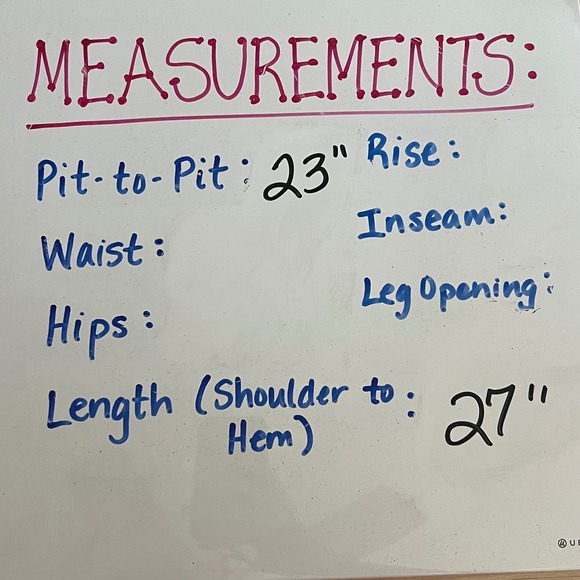 MEASUREMENTS:
Pit-to-Pit: 23"
Rise:
Waist:
Inseam:
Hips:
Leg Opening:
Length (Shoulder to Hem): 27"